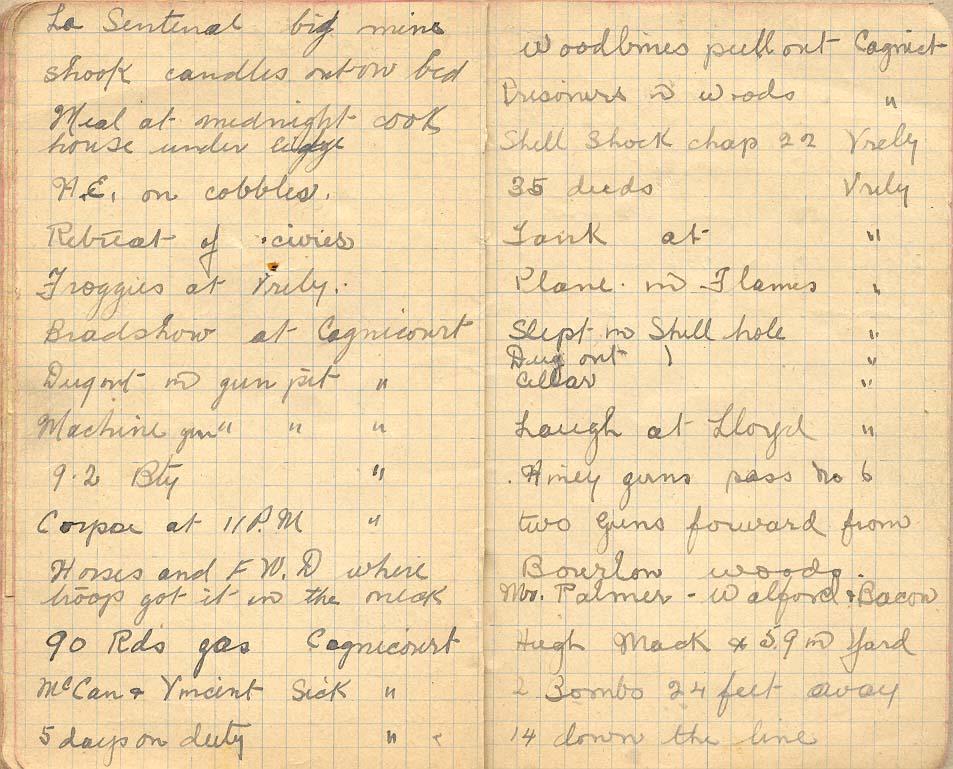 La Sentenal big mine
shook candles on tow bed
Meal at midnight cook
house under
H.E. on cobbles.
Retreat of civies
Froggies at Vrely.
Bradshow at Cagnicourt
Dugout in gun pit "
Machine gun " " "
9.2 Bty "
Corpse at 11 P.M "
Horses and F.W.D where
troops got it in the neck
90 Rds gas Cagnicourt
McCan & Vincent Sick "
5 days on duty "
Woodbines pull out Cagnict
Prisoners in woods "
Shell Shock chap 22 Vrely
35 dieds Vrely
Tank at "
Plane in Flames "
Slept in Shell hole "
Dug out ) "
Cellar "
Laugh at Lloyd "
Hiney guns pass No 6
two Guns forward from
Bourlon woods.
Mr. Palmer - Walford & Bacon
Hugh Mack & 5.9 in Yard
2 Bombs 24 feet away
14 down the line